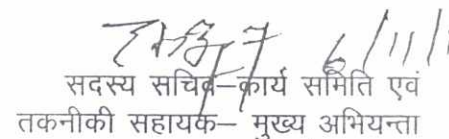 6/11/
सदस्य सचिव–कार्य समिति एवं
तकनीकी सहायक– मुख्य अभियन्ता